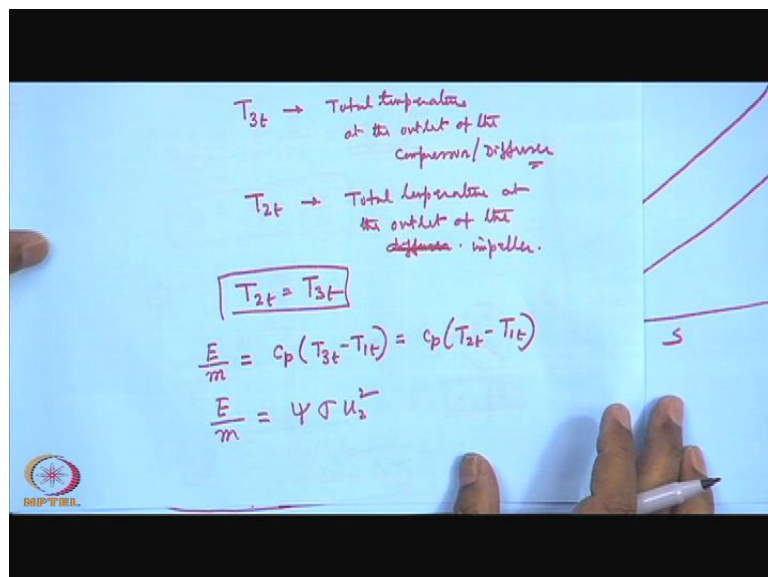 T₃ₜ → Total temperature
at the outlet of the
Compressor/Diffuser
T₂ₜ → Total temperature at
the outlet of the
diffuser. impeller.
T₂ₜ = T₃ₜ
E/m = cₚ(T₃ₜ - T₁ₜ) = cₚ(T₂ₜ - T₁ₜ)
E/m = ψ σ U₂²
S
NPTEL